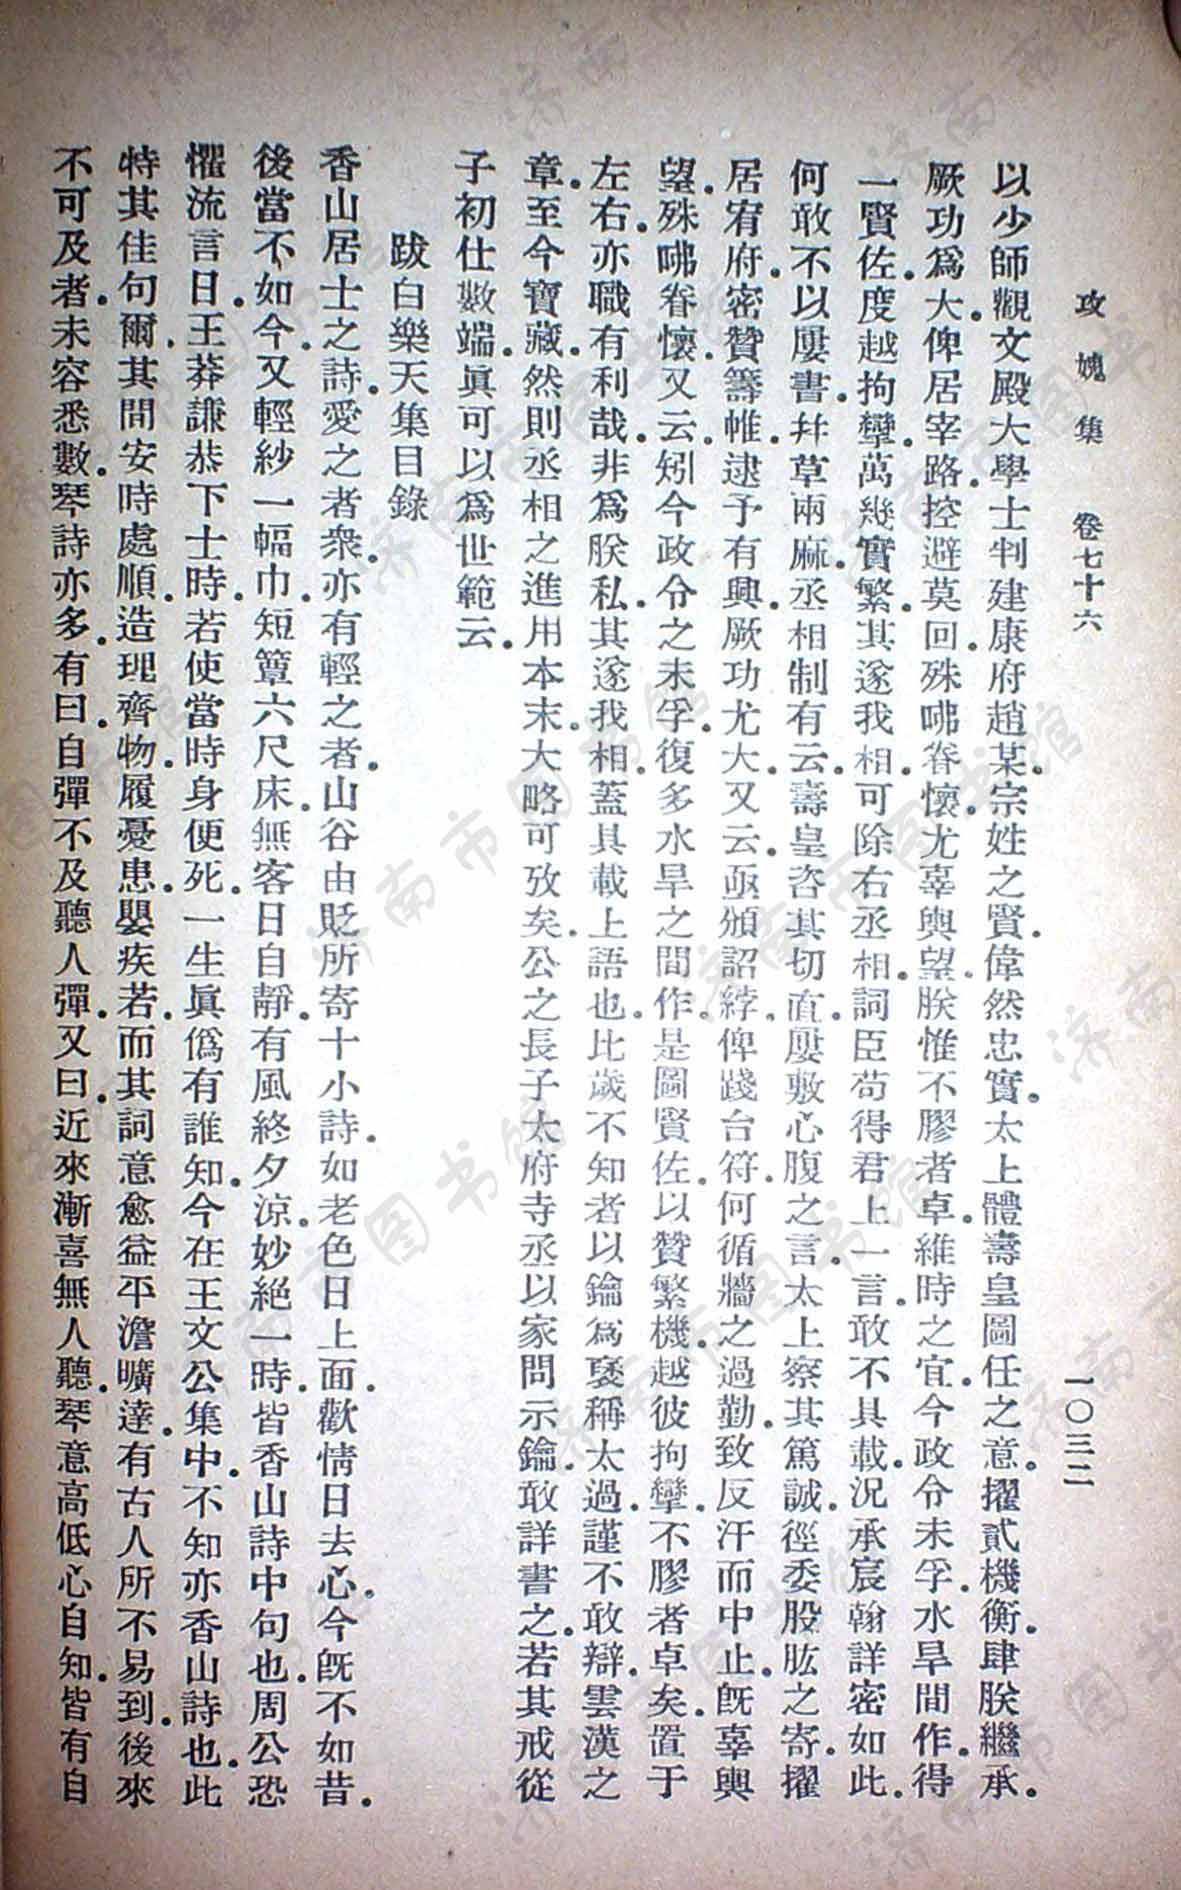 攻媿集　卷七十六　一〇三二
以少師觀文殿大學士判建康府趙某。宗姓之賢。偉然忠實。太上體壽皇圖任之意。擢貳機衡。肆朕繼承。
厥功爲大。俾居宰路。控避莫回。殊咈眷懷。尤辜輿望。朕惟不膠者卓。維時之宜。今政令未孚。水旱間作。得
一賢佐。度越拘攣。萬幾實繁。其遂我相。可除右丞相。詞臣苟得君上一言。敢不具載。況承宸翰詳密如此。
何敢不以屢書。幷草兩麻。丞相制有云。壽皇咨其切直。屢敷心腹之言。太上察其篤誠。徑委股肱之寄。擢
居宥府。密贊籌帷。逮予有興。厥功尤大。又云。亟頒詔綍。俾踐台符。何循牆之過勤。致反汗而中止。旣辜輿
望。殊咈眷懷。又云。矧今政令之未孚。復多水旱之間作。是圖賢佐。以贊繁機。越彼拘攣。不膠者卓矣。置于
左右。亦職有利哉。非爲朕私。其遂我相。蓋具載上語也。比歲不知者以鑰爲褒稱太過。謹不敢辯。雲漢之
章。至今寶藏。然則丞相之進用本末。大略可攷矣。公之長子太府寺丞以家問示鑰。敢詳書之。若其戒從
子初仕數端。眞可以爲世範云。
跋白樂天集目錄
香山居士之詩。愛之者衆。亦有輕之者。山谷由貶所寄十小詩。如老色日上面。歡情日去心。今旣不如昔。
後當不如今。又輕紗一幅巾。短簟六尺床。無客日自靜。有風終夕涼。妙絕一時。皆香山詩中句也。周公恐
懼流言日。王莽謙恭下士時。若使當時身便死。一生眞僞有誰知。今在王文公集中。不知亦香山詩也。此
特其佳句爾。其間安時處順。造理齊物。履憂患。嬰疾若。而其詞意愈益平澹曠達。有古人所不易到。後來
不可及者。未容悉數。琴詩亦多。有曰。自彈不及聽人彈。又曰。近來漸喜無人聽。琴意高低心自知。皆有自